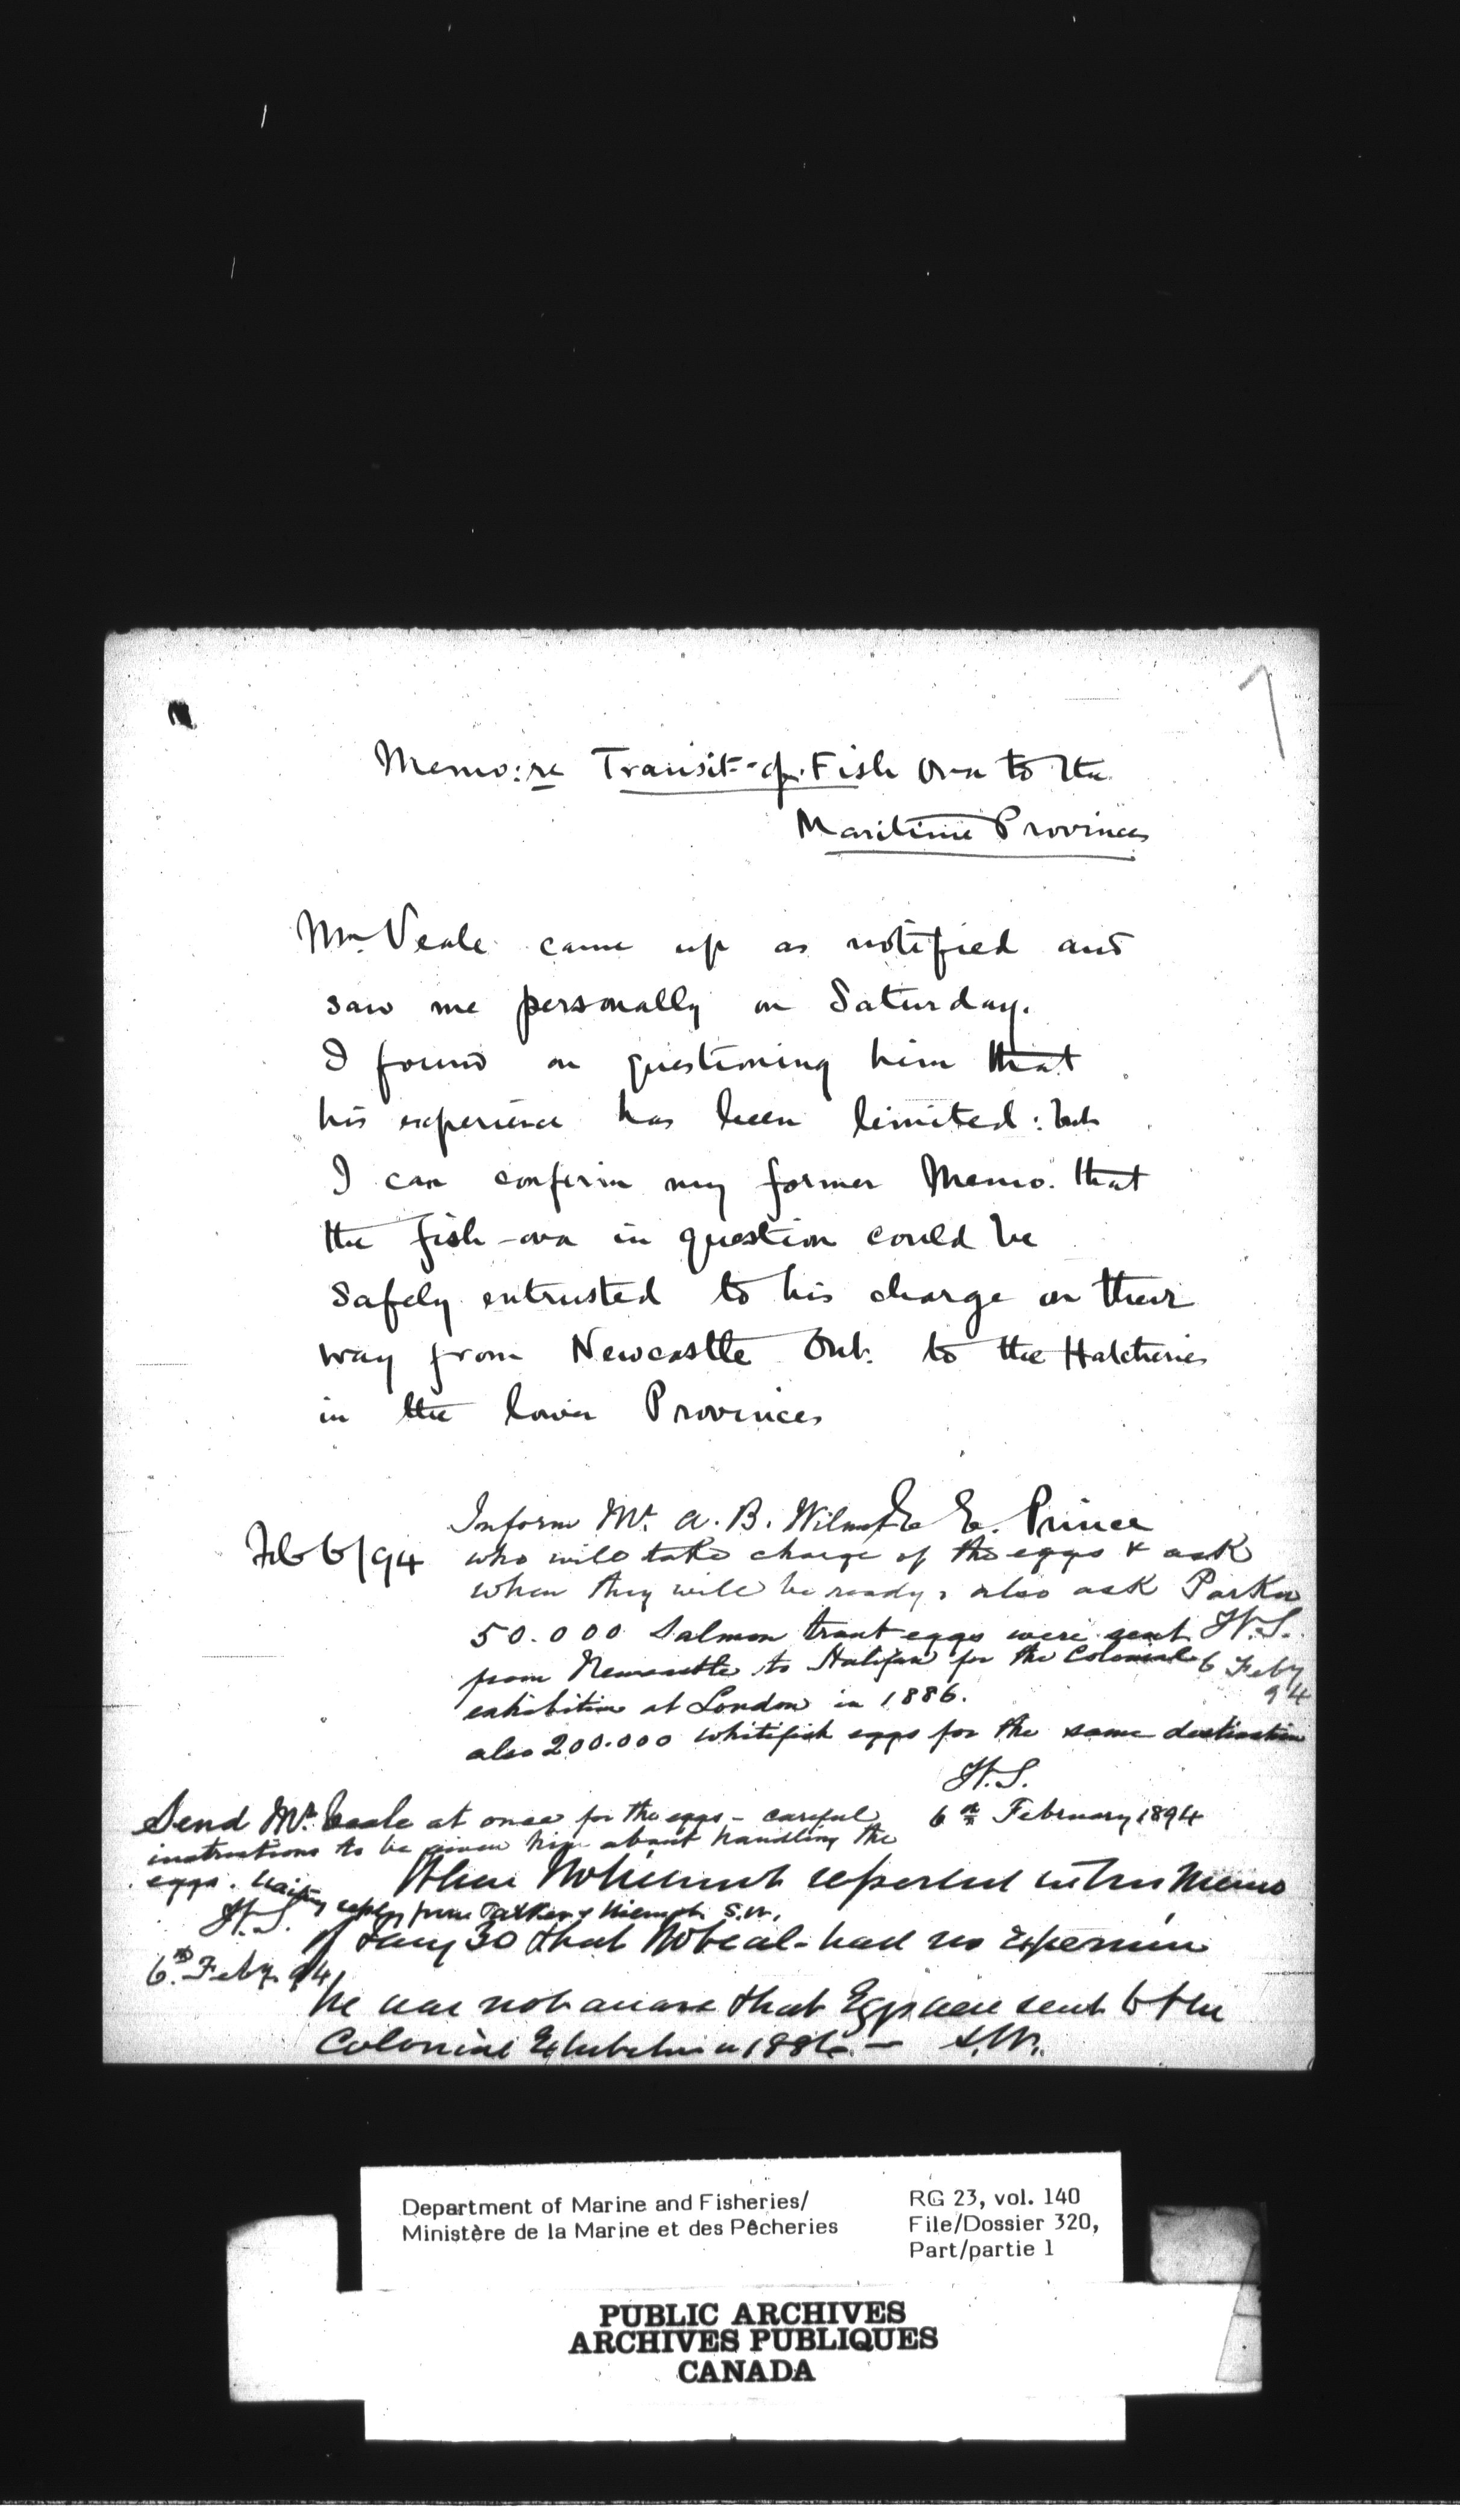 Memo: re Transit of Fish Ova to the
Maritime Provinces
Mr. Veale came up as notified and
saw me personally on Saturday.
I found on questioning him that
his experience has been limited: but
I can confirm my former Memo. that
the fish-ova in question could be
safely entrusted to his charge on their
way from Newcastle Ont. to the Hatcheries
in the lower Provinces
E. E. Prince
Feb 6/94
Inform Mr. A. B. Wilmot
who will take charge of the eggs & ask
when they will be ready, also ask Parker
H.S.
6 Feby
94
50.000 Salmon trout eggs were sent
from Newcastle to Halifax for the Colonial
exhibition at London in 1886.
also 200.000 whitefish eggs for the same destination
H.S.
6th February 1894
Send Mr. Veale at once for the eggs - careful
instructions to be given him about handling the
eggs.
H.S.
6th Feby 94
Waiting reply from Parker & Wilmot S.W.
When Wilmot reported in his Memo
of Jany 30 that Veale had no Experience
he was not aware that Eggs were sent to the
Colonial Exhibition in 1886. — S.W.
Department of Marine and Fisheries/
Ministère de la Marine et des Pêcheries
RG 23, vol. 140
File/Dossier 320,
Part/partie 1
PUBLIC ARCHIVES
ARCHIVES PUBLIQUES
CANADA